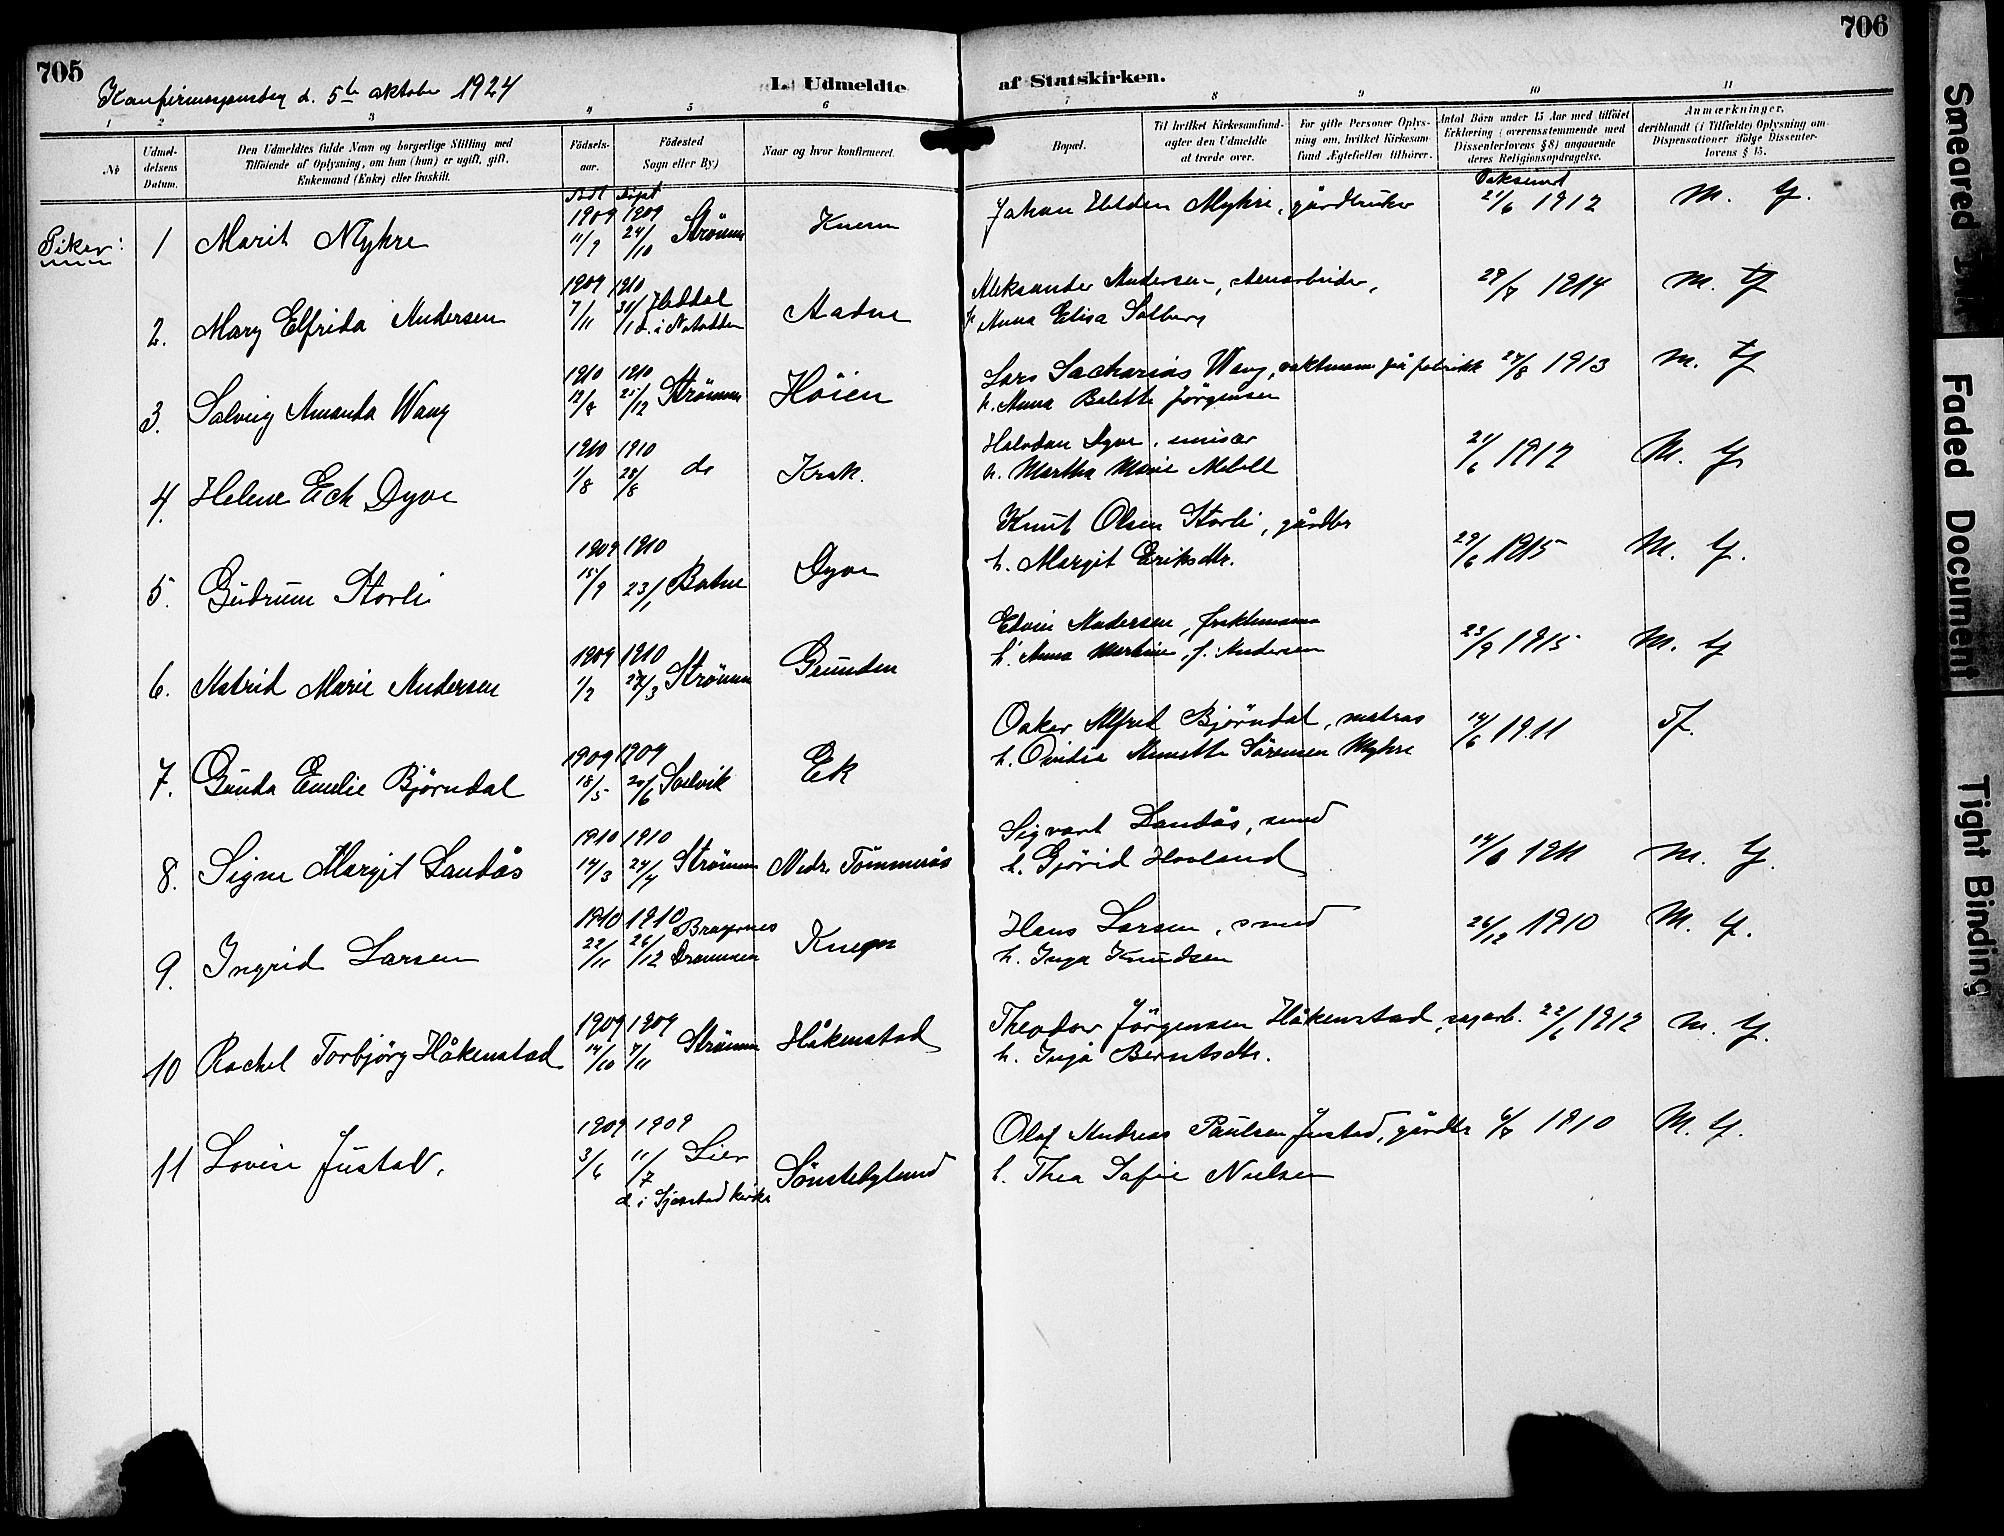 705
706
Konfirmasjonsdag d. 5te oktober 1924
L. Udmeldte af Statskirken.
1 2 3 4 5 6 7 8 9 10 11
No
Udmeldelsens Datum.
Den Udmeldtes fulde Navn og borgerlige Stilling med Tilføiende af Oplysning, om han (hun) er ugift, gift, Enkemand (Enke) eller fraskilt.
Fødselsaar.
Fødested Sogn eller By)
Naar og hvor konfirmeret.
Bopæl.
Til hvilket Kirkesamfund agter den Udmeldte at træde over.
For gifte Personer Oplysning om, hvilket Kirkesamfund Ægtefællen tilhører.
Antal Børn under 15 Aar med tilføiet Erklæring (overensstemmende med Dissenterlovens § 8) angaaende deres Religionsopdragelse.
Anmærkninger, deriblandt (i Tilfælde) Oplysning om Dispensationer ifølge Dissenterlovens § 15.
Født Døpt
Vaksinert
Piker:
1 Marit Myhre 1909 11/9 1909 24/10 Strømm Johan Halden Myhre, gårdbruker 21/6 1912 M. G.
2. Mary Elfrida Andersen 1909 7/11 1910 30/1 Heddal d. i Notodden Aadne Aleksander Andersen, stenarbeider,
h. Anna Elisa Solberg 29/7 1914 M. G
3. Solveig Amanda Wang 1910 12/8 1910 25/12 Strømm Høien Lars Sacharias Wang, vaktmann på fabrikk
h. Anna Bolette Jörgensen 27/8 1913 M. G
4. Helene Eck Dyve 1910 1/8 1910 28/8 do Krok. Halvdan Dyve
h. Martha Marie Mebell 21/6 1912 M. G
5. Gudrun Storli 1909 15/9 1910 23/1 Botne Dyve Knut Olsen Storli, gårdbr
h. Margit Eriksdtr. 29/6 1915 M. G.
6. Astrid Marie Andersen 1909 1/2 1910 27/3 Strømm Grunden Edvin Andersen,
h. Anna Martine, f. Andersen 23/9 1915 M. G
7. Gunda Emelie Bjørndal 1909 18/5 1909 20/6 Selvik Ek Oskar Alfred Bjørndal, matros
h. Ovidia Annette Sørensen Myhre 14/6 1911
8. Signe Margit Landås 1910 14/3 1910 24/4 Strømm Nedre Tømmerås Sigvart Landås, smed
h. Gjörid Hovland 14/6 1911 M. G.
9. Ingrid Larsen 1910 22/11 1910 26/12 Bragernes Drammen Hans Larsen, smed
h. Inga Knudsen 26/12 1910 M. G.
10 Rachel Torbjörg Håkenstad 1909 14/10 1909 7/11 Strømm Håkenstad Theodor Jörgensen Håkenstad, sagarb.
h. Inga Berntsdtr. 22/6 1912 M. G.
11 Lovise Justad. 1909 3/6 1909 11/7 Lier d. i Sjåstad kirke Sönstebylund Olaf Andreas Paulsen Justad, gårdbr
h. Thea Sofie Nielsen 6/7 1910 M. G.
Smeared Ink
Faded Document
Tight Binding